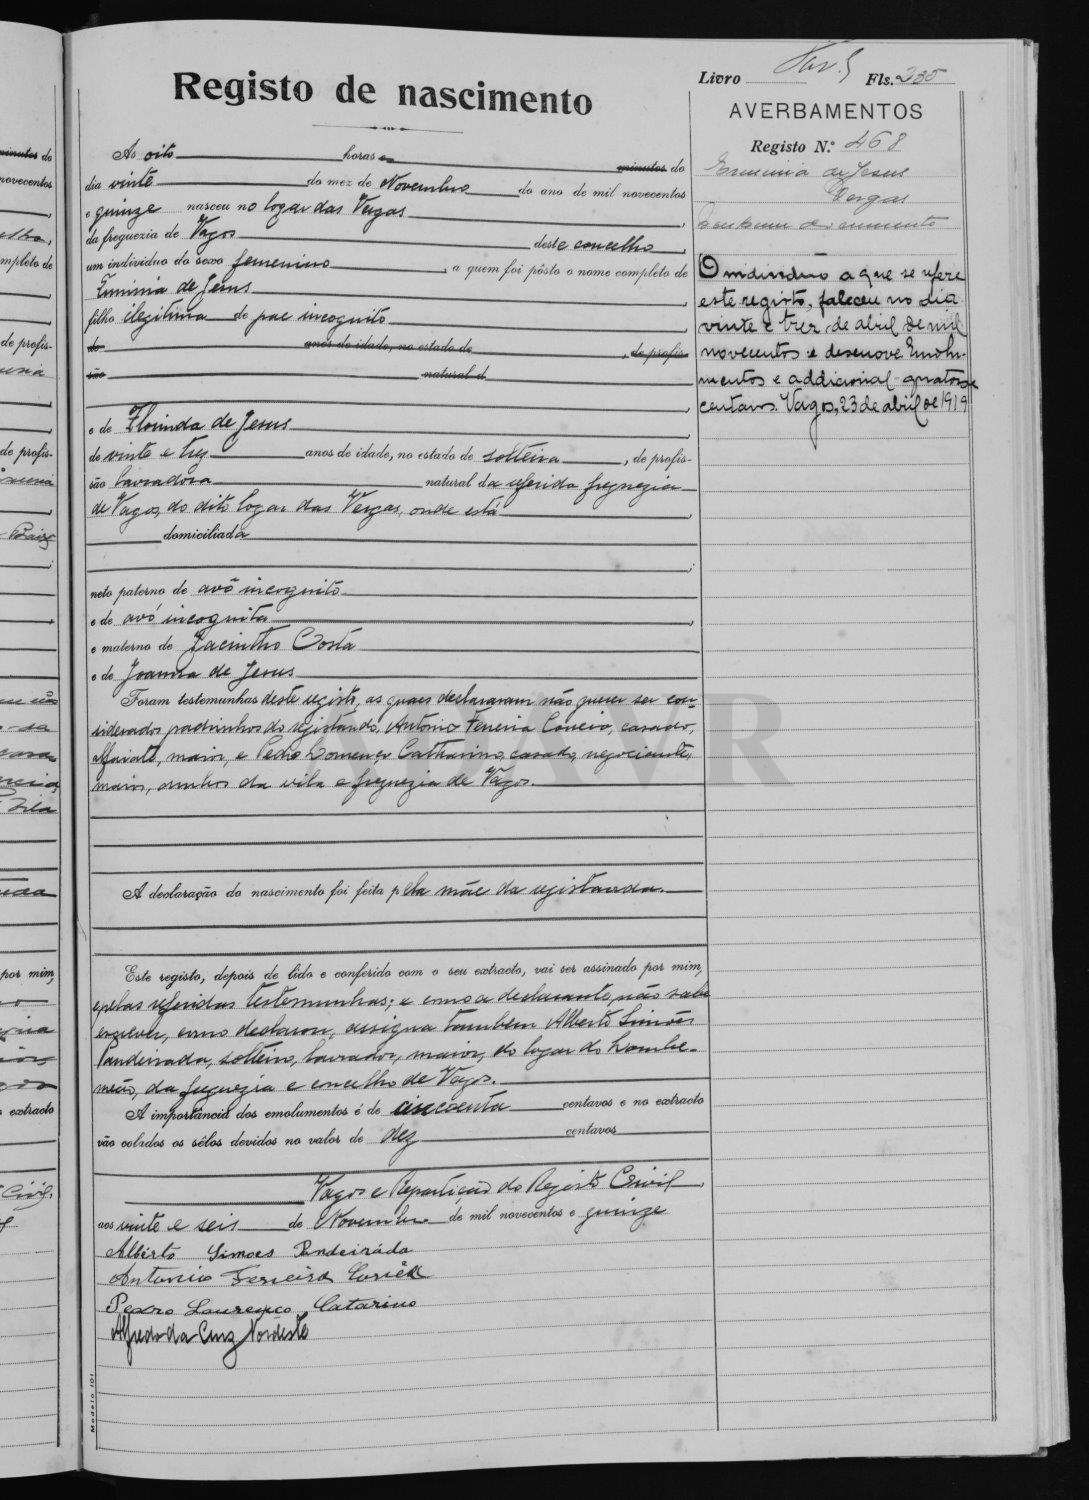 Registo de nascimento
Livro Fls. 235
AVERBAMENTOS
Registo N.º 468
Erminia de Jesus
Vergas
As oito horas e minutos do
dia vinte do mez de Novembro do ano de mil novecentos
e quinze nasceu no logar das Vergas
da freguezia de Vagos deste concelho
um individuo do sexo femenino, a quem foi pôsto o nome completo de
Erminia de Jesus
filho ilegitima de pae incognito
de anos de idade, no estado de, de profis-
são natural d
e de Florinda de Jesus
de vinte e tres anos de idade, no estado de solteira, de profis-
são lavradora natural da referida freguezia
de Vagos, do dito logar das Vergas, onde está
domiciliada
neto paterno de avô incognito
e de avó incognita
e materno de Jacintho Costa
e de Joanna de Jesus
Foram testemunhas deste registo, as quaes declararam não querer ser con-
siderados padrinhos do registando, Antonio Ferreira Correia, casado,
alfaiate, maior, e Pedro Lourenço Catharino, casado, negociante,
maior, ambos da vila e freguezia de Vagos.
A declaração do nascimento foi feita pela mãe da registanda.
Este registo, depois de lido e conferido com o seu extracto, vai ser assinado por mim,
e pelas referidas testemunhas; e como a declarante não sabe
escrever, como declarou, assigna tambem Alberto Simões
Pandeirada, solteiro, lavrador, maior, do logar do Lombo-
meão, da freguezia e concelho de Vagos.
A importância dos emolumentos é de cincoenta centavos e no extracto
vão colados os sêlos devidos no valor de dez centavos
Vagos e Repartição do Registo Civil,
aos vinte e seis de Novembro de mil novecentos e quinze
Alberto Simoes Pandeiráda
Antonio Ferreira Correia
Pedro Lourenço Catarino
Alfredo da Cruz Nordeste
Modelo 101
O individuo a que se refere
este registo, faleceu no dia
vinte e trez de abril de mil
novecentos e desenove. Emolu-
mentos e addicional quatorze
centavos. Vagos, 23 de abril de 1919